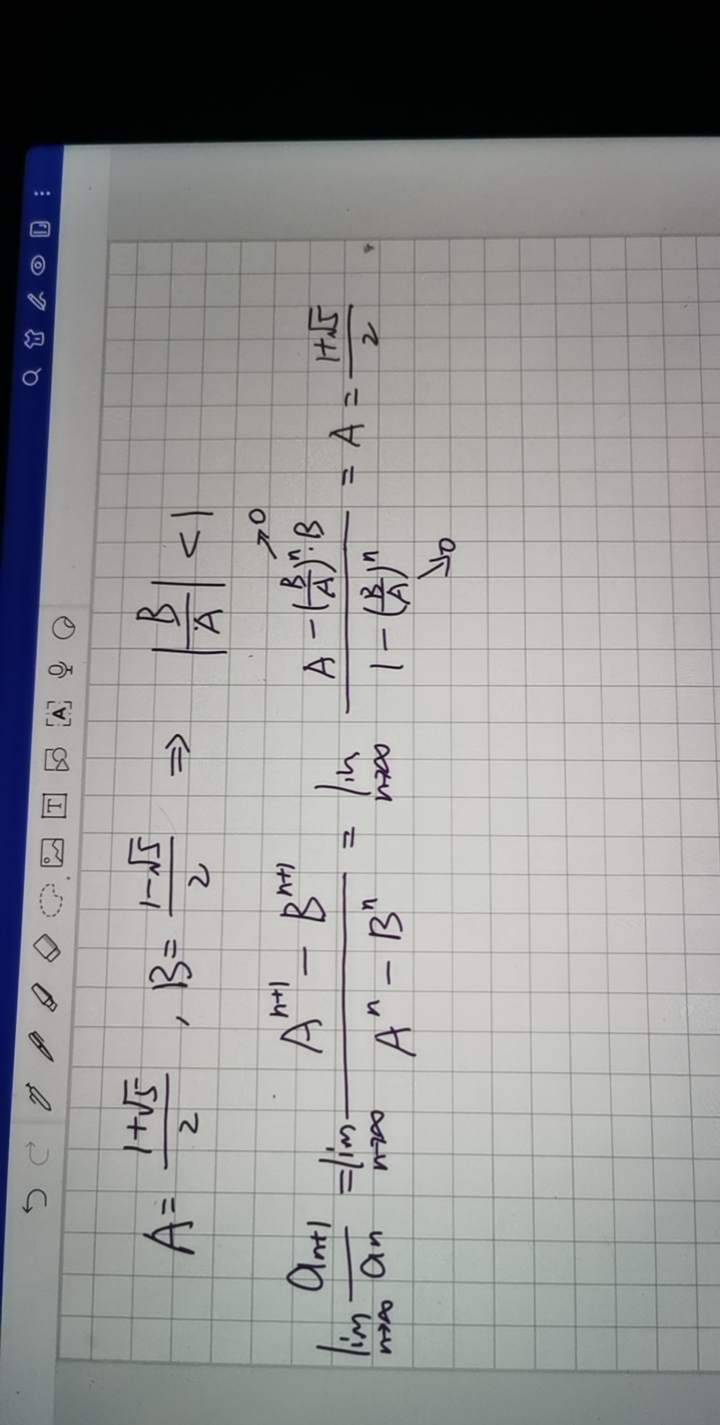 A = (1+√5)/2 , B = (1-√5)/2 ⇒ |B/A| < 1
lim_{n→∞} a_{n+1}/a_n = lim_{n→∞} (A^{n+1} - B^{n+1})/(A^n - B^n) = lim_{n→∞} (A - (B/A)^n · B)/(1 - (B/A)^n) = A = (1+√5)/2
↗0
↘0